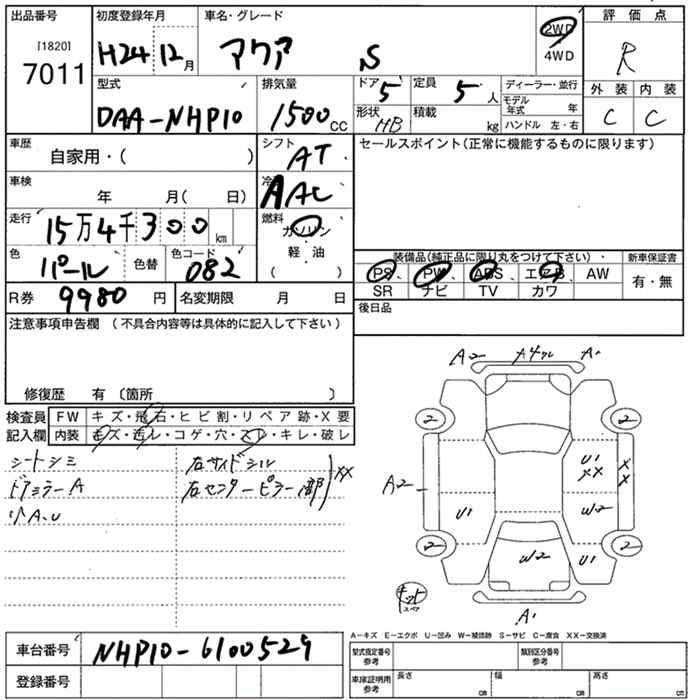 出品番号 初度登録年月 車名・グレード 評価点
[1820]
7011 H24年12月 アクア S 2WD R
4WD
型式 排気量 ドア 5 定員 5人 ディーラー・並行 外装 内装
DAA-NHP10 1500cc 形状 HB 積載 kg モデル年式 年 C C
ハンドル 左・右
車歴 自家用・( ) シフト AT セールスポイント(正常に機能するものに限ります)
車検 年 月( 日) 冷 AAC
走行 15万4千300km 燃料 ガソリン
軽・油
色 パール 色替 色コード 082 ( )
装備品(純正品に限り丸をつけて下さい) 新車保証書
PS、 PW、 ABS、 エアB、 AW 有・無
SR ナビ TV カワ
R券 9980円 名変期限 月 日
後日品
注意事項申告欄 (不具合内容等は具体的に記入して下さい)
修復歴 有 〔箇所 〕
検査員 FW キズ・飛石・ヒビ割・リペア跡・X要
記入欄 内装 キズ・汚レ・コゲ・穴・スレ・キレ・破レ
シートシミ 右サイドシル
ドアミラーA 右センターピラー部 XX
小A.U
A2 A4 A1
2 2
U1
XX XX
A2
U1 W2
2 W2 U1 2
キット
スペア
A1
A-キズ E-エクボ U-凹み W-補修跡 S-サビ C-腐食 XX-交換済
車台番号 NHP10-6100529
登録番号
型式指定番号 参考 類別区分番号 参考
車庫証明用 参考 長さ cm 幅 cm 高さ cm